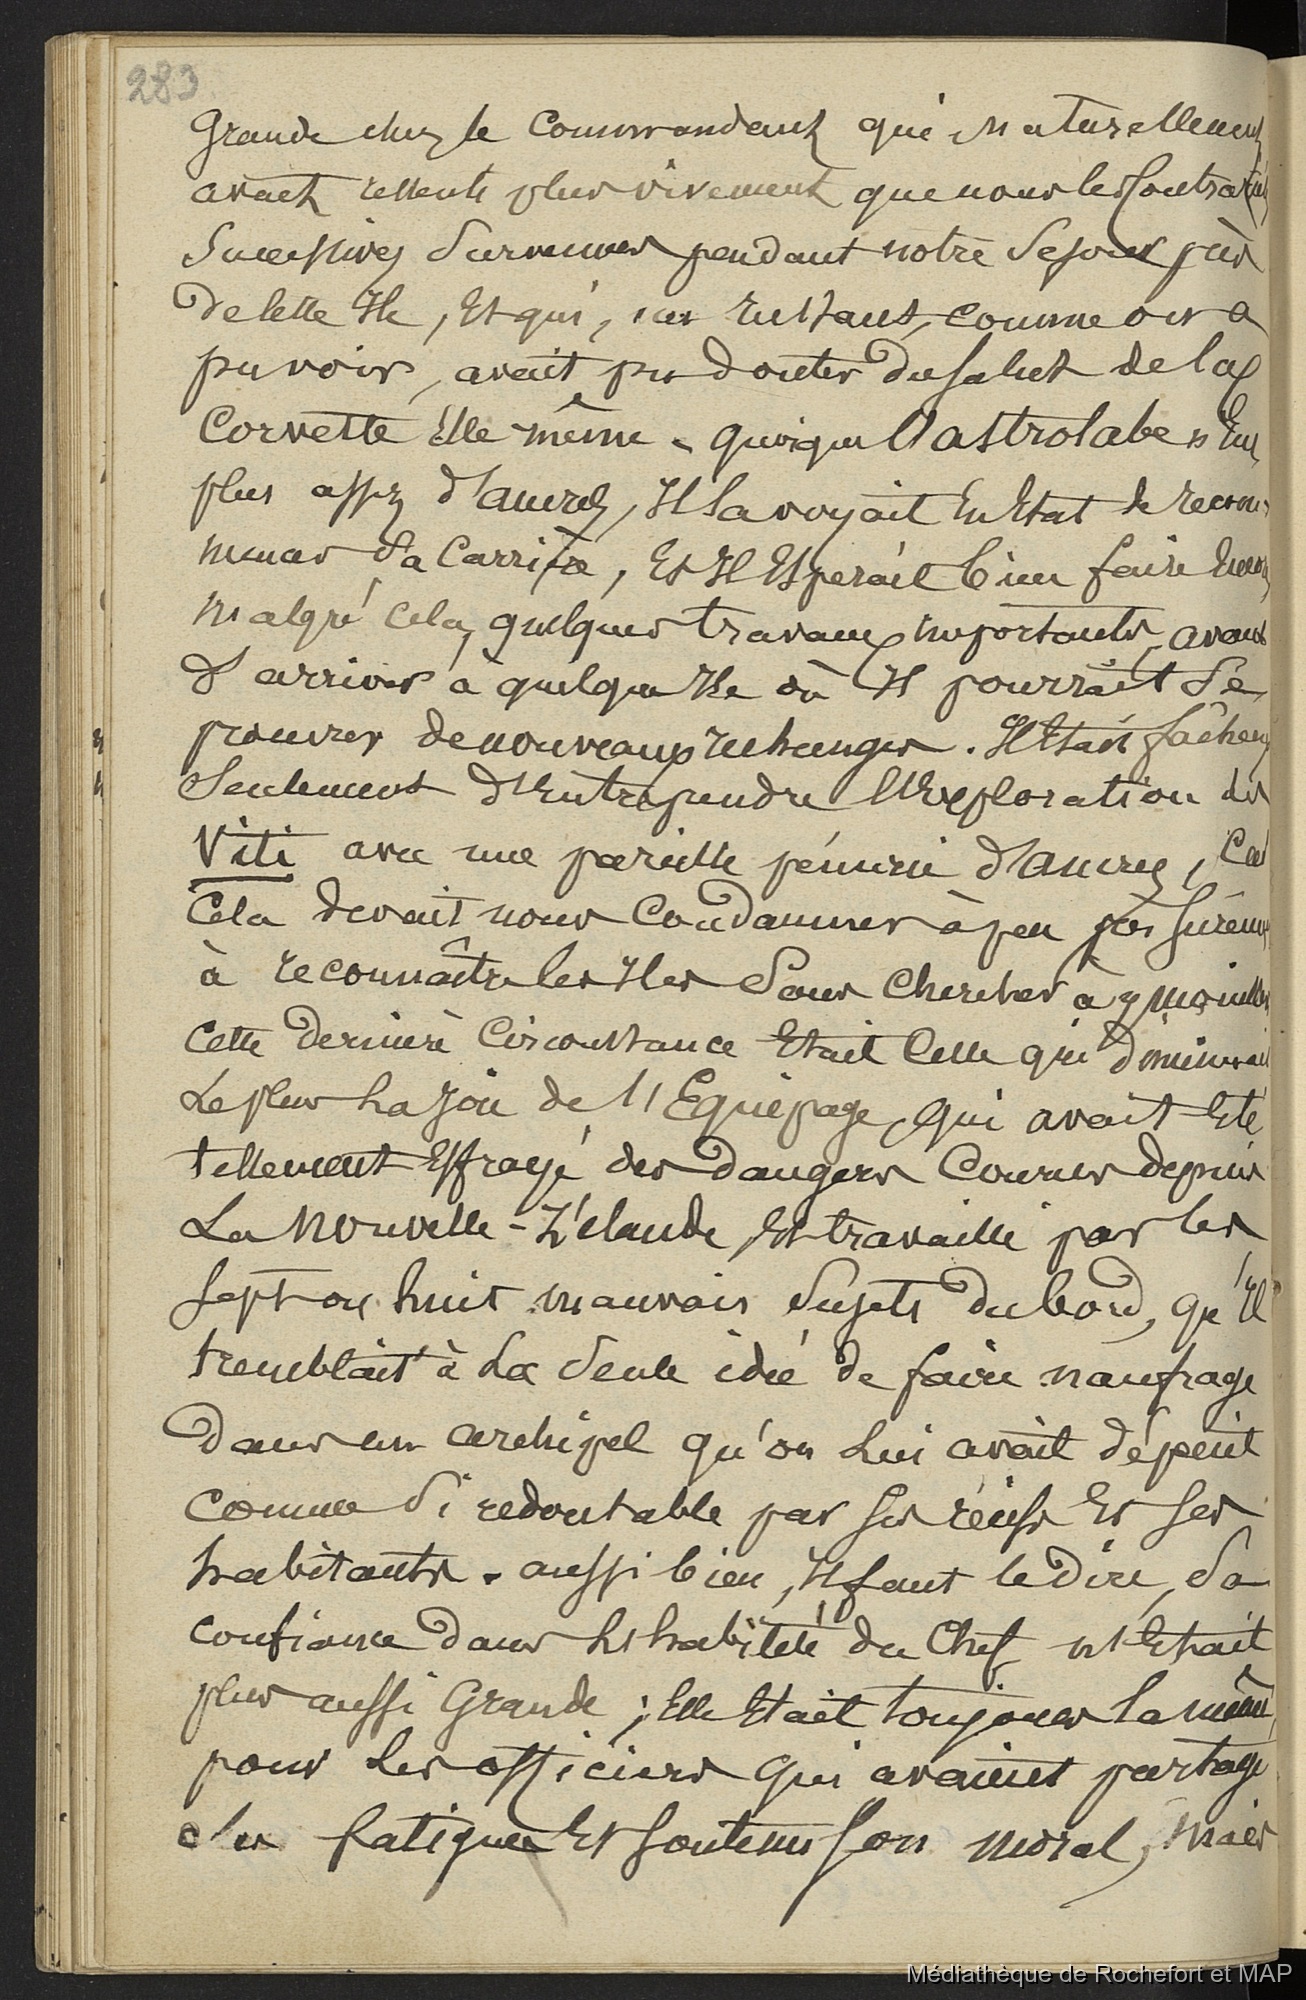 283
Grande chez le Commandant qui naturellement
avait ressenti plus vivement que nous les Contrariétés
Successives Survenues pendant notre Séjour près
de cette Ile, Et qui, un Instant, comme on a
pu voir, avait pu douter du Salut de la
Corvette Elle même - quoique l'astrolabe n'Eut
plus assez d'ancres, Il la voyait En Etat de recom-
mencer Sa Carrière, Et Il Espérait bien faire Encore,
malgré cela, quelques travaux Importants, avant
d'arriver à quelque Ile où Il pourrait Se
procurer de nouveaux rechanges. Il Etait fâcheux
Seulement d'Entreprendre l'Exploration des
Viti avec une pareille pénurie d'ancres, Car
Cela devait nous Condamner à peu près Sûrement
à reconnaître les Iles Sans Chercher à y mouiller
Cette dernière Circonstance Etait Celle qui dominait
Le plus de l'Equipage, qui avait Eté
tellement Effrayé des dangers Courus depuis
La Nouvelle-Zélande, Et travaillé par les
Sept ou huit mauvais Sujets du bord, qu'Il
tremblait à La Seule idée de faire naufrage
dans un archipel qu'on Lui avait dépeint
comme Si redoutable par Ses récifs Et Ses
habitants. aussi bien, Il faut le dire, Sa
confiance dans l'habileté du Chef n'Etait
plus aussi Grande ; Elle Etait toujours la même
pour Les officiers qui avaient partagé
Ses fatigues Et Soutenu Son moral, mais
Médiathèque de Rochefort et MAP